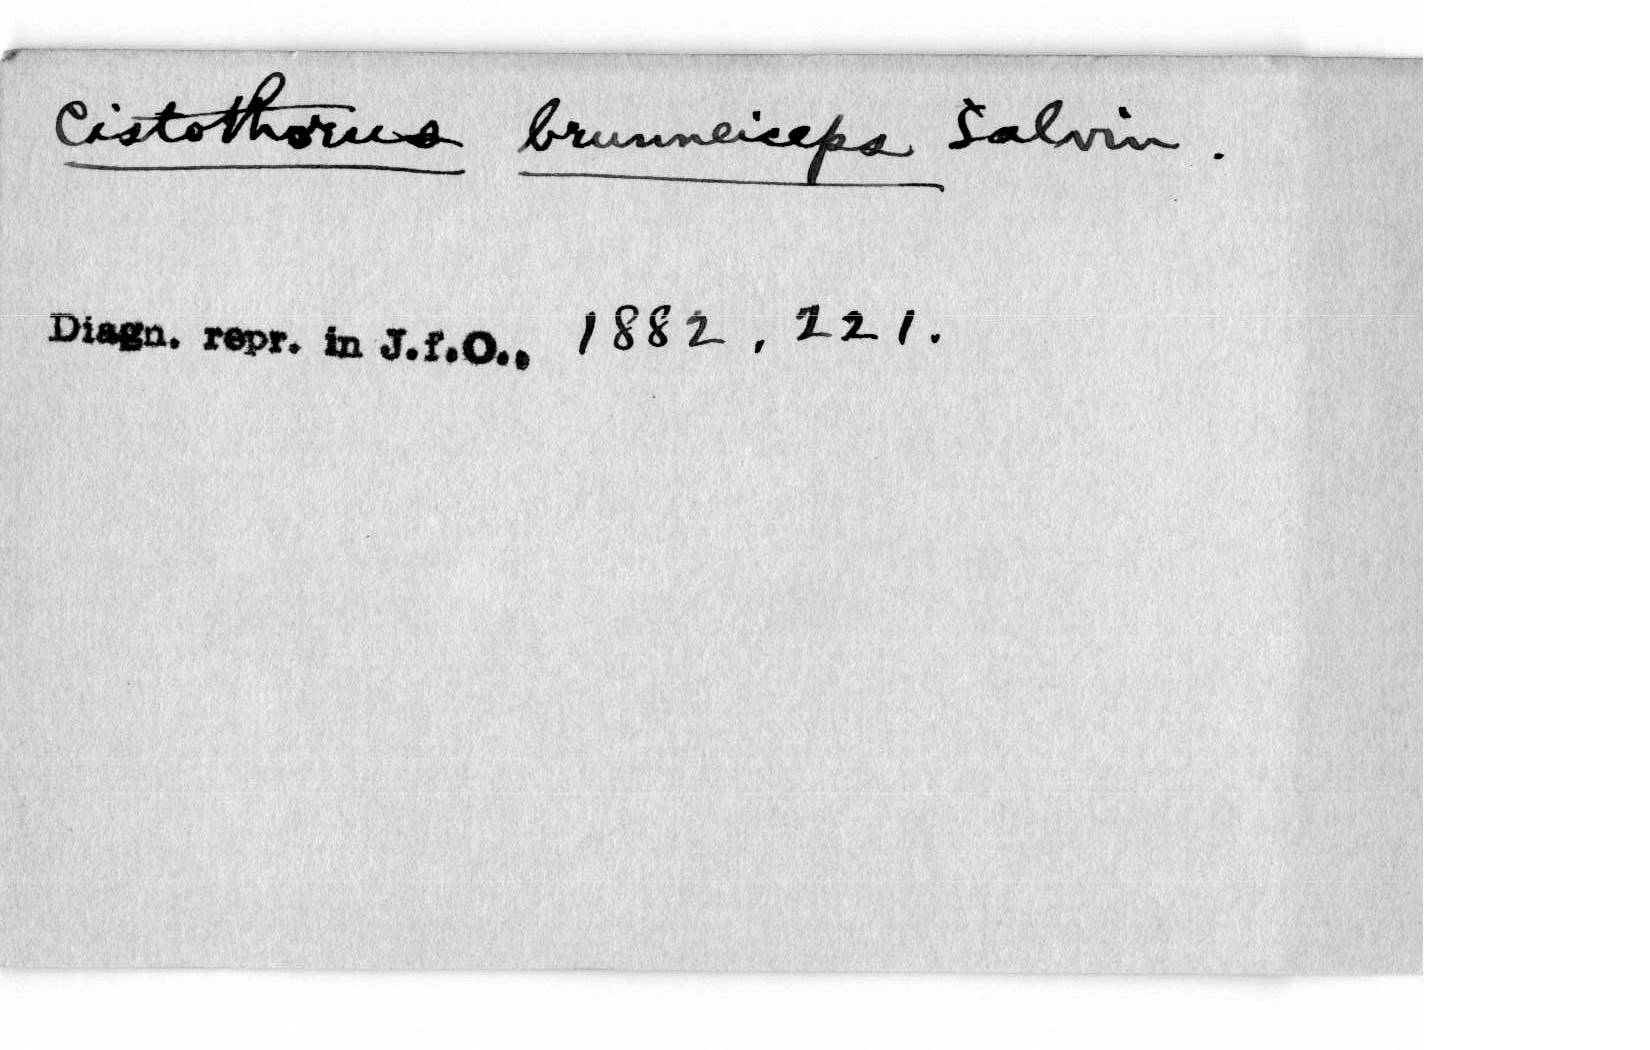 Cistothorus brunneiceps Salvin.
Diagn. repr. in J.f.O., 1882, 221.